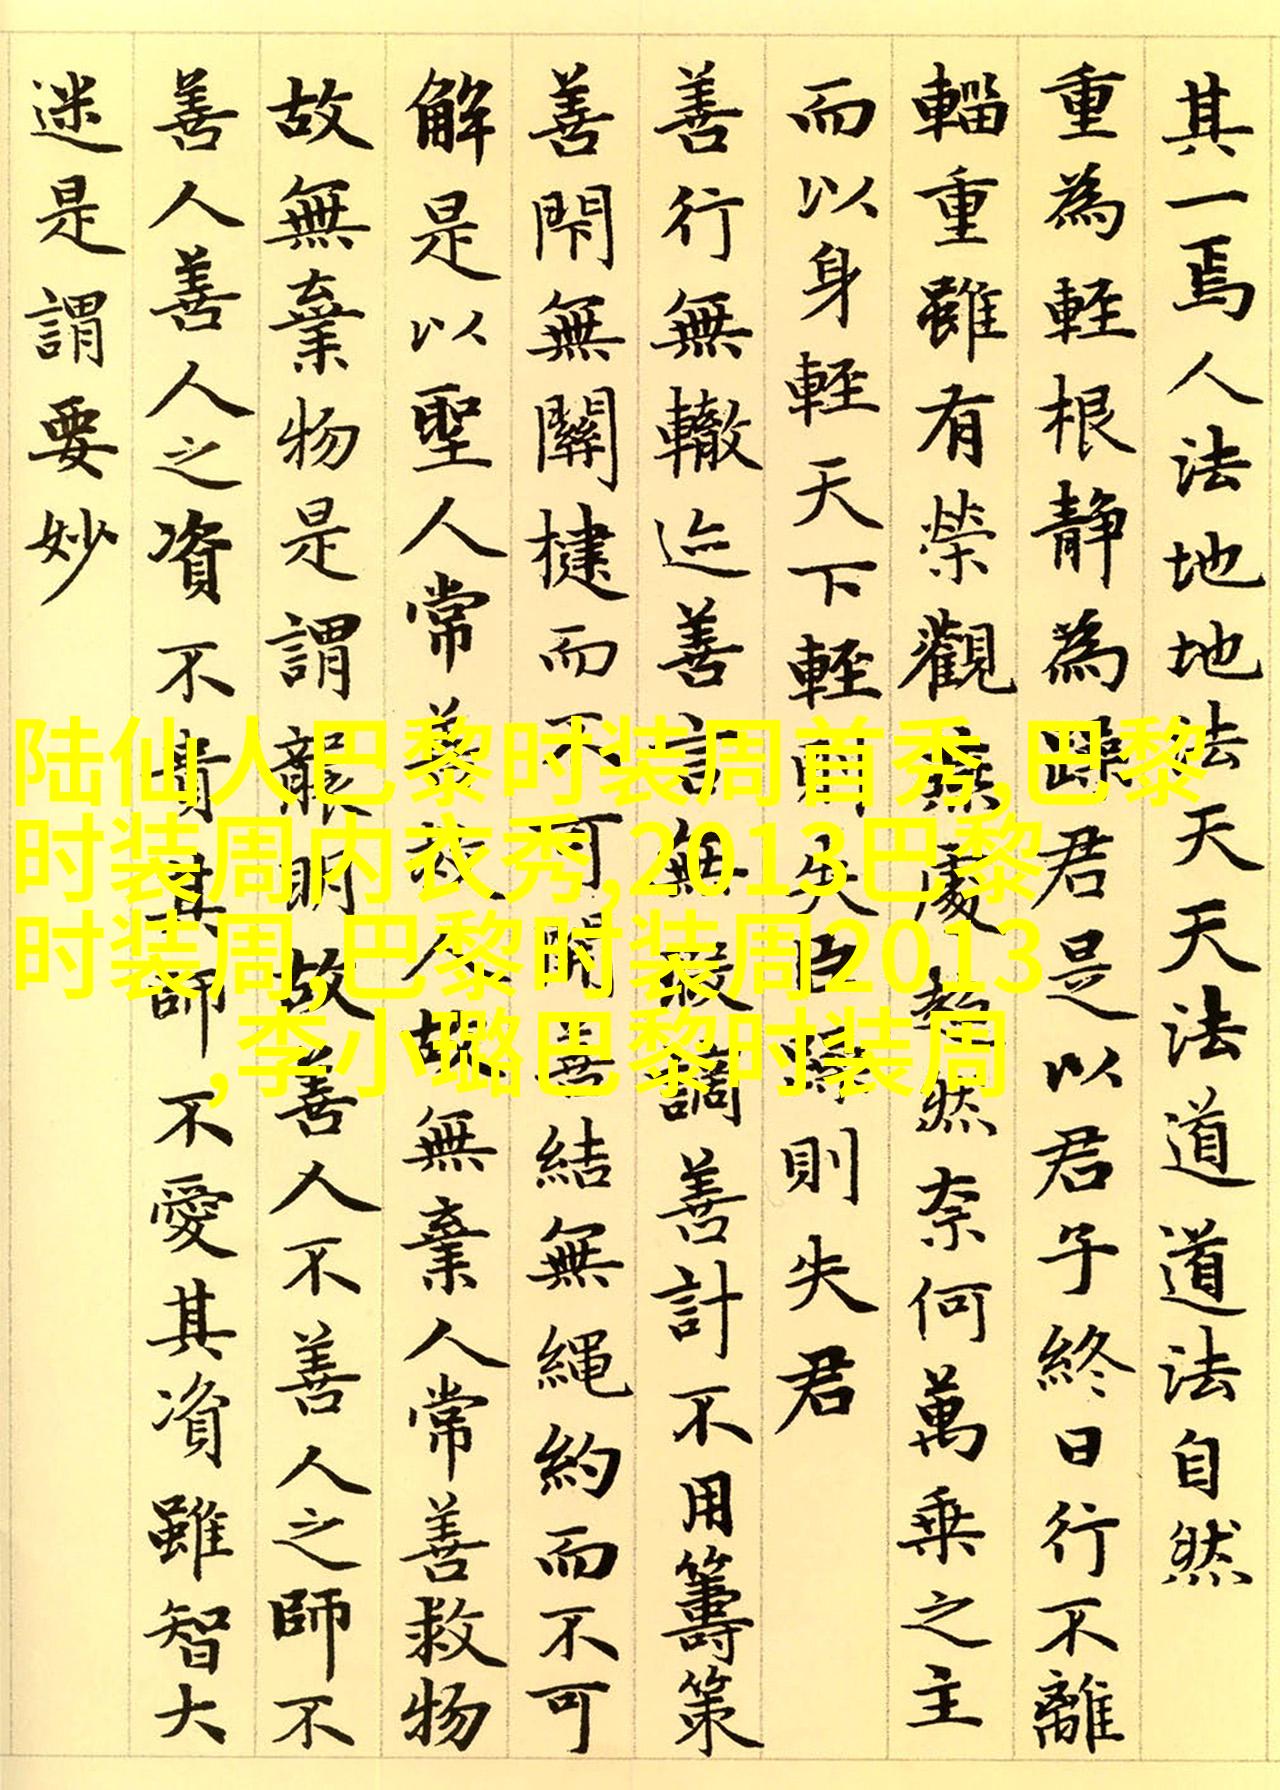 其一焉人法地地法天天法道道法自然
重為輕根靜為躁君是以君子終日行不離
輜重雖有榮觀燕處超然奈何萬乘之主
而以身輕天下輕則失臣躁則失君
善行無轍迹善言無瑕謫善計不用籌策
善閇無關楗而不可開善結無繩約而不可
解是以聖人常善救人故無棄人常善救物
故無棄物是謂襲明故善人不善人之師不
善人善人之資不貴其師不愛其資雖智大
迷是謂要妙
陆仙人巴黎时装周首秀,巴黎
时装周内衣秀,2013巴黎
时装周,巴黎时装周2013
,李小璐巴黎时装周